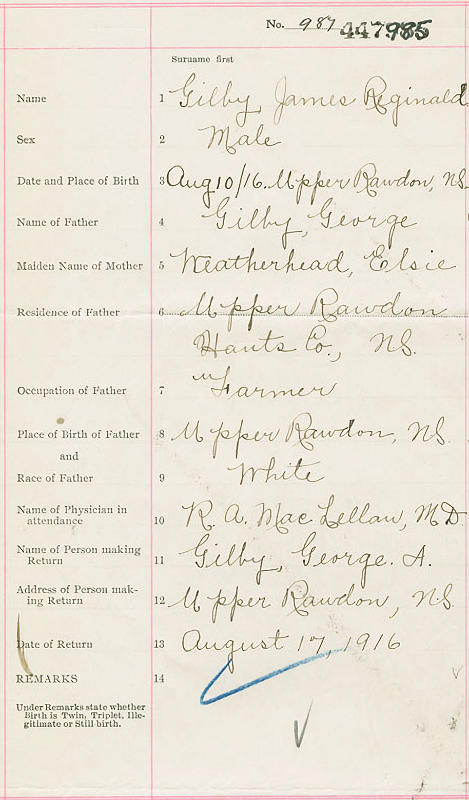 No. 987 447985
Surname first
Name 1 Gilby, James Reginald
Sex 2 Male
Date and Place of Birth 3 Aug 10/16. Upper Rawdon, NS.
Name of Father 4 Gilby, George
Maiden Name of Mother 5 Weatherhead, Elsie
Residence of Father 6 Upper Rawdon
Hants Co., NS.
Occupation of Father 7 Farmer
Place of Birth of Father 8 Upper Rawdon, NS.
and
Race of Father 9 White
Name of Physician in
attendance 10 R. A. MacLellan, MD.
Name of Person making
Return 11 Gilby, George. A.
Address of Person mak-
ing Return 12 Upper Rawdon, NS.
Date of Return 13 August 17, 1916
REMARKS 14
Under Remarks state whether
Birth is Twin, Triplet, Ille-
gitimate or Still-birth.